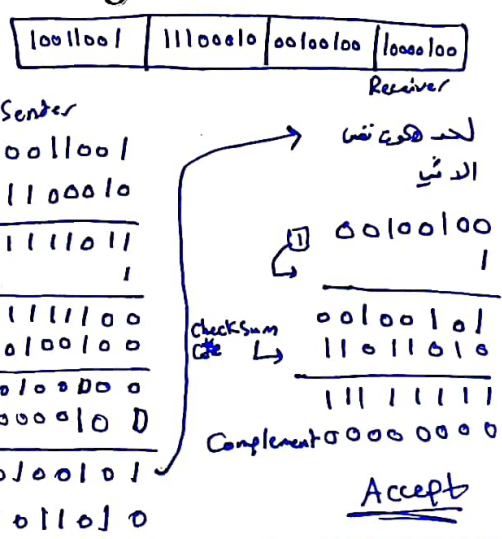 10011001 11100010 00100100 10000100
Receiver
Sender
0011001
1100010
1111011
1
1111100
0100100
0100000
0000100
0100101
011010
لحد هكون نفس
الاشيا
1 00100100
1
00100101
Checksum
11011010
11111111
Complement 00000000
Accept